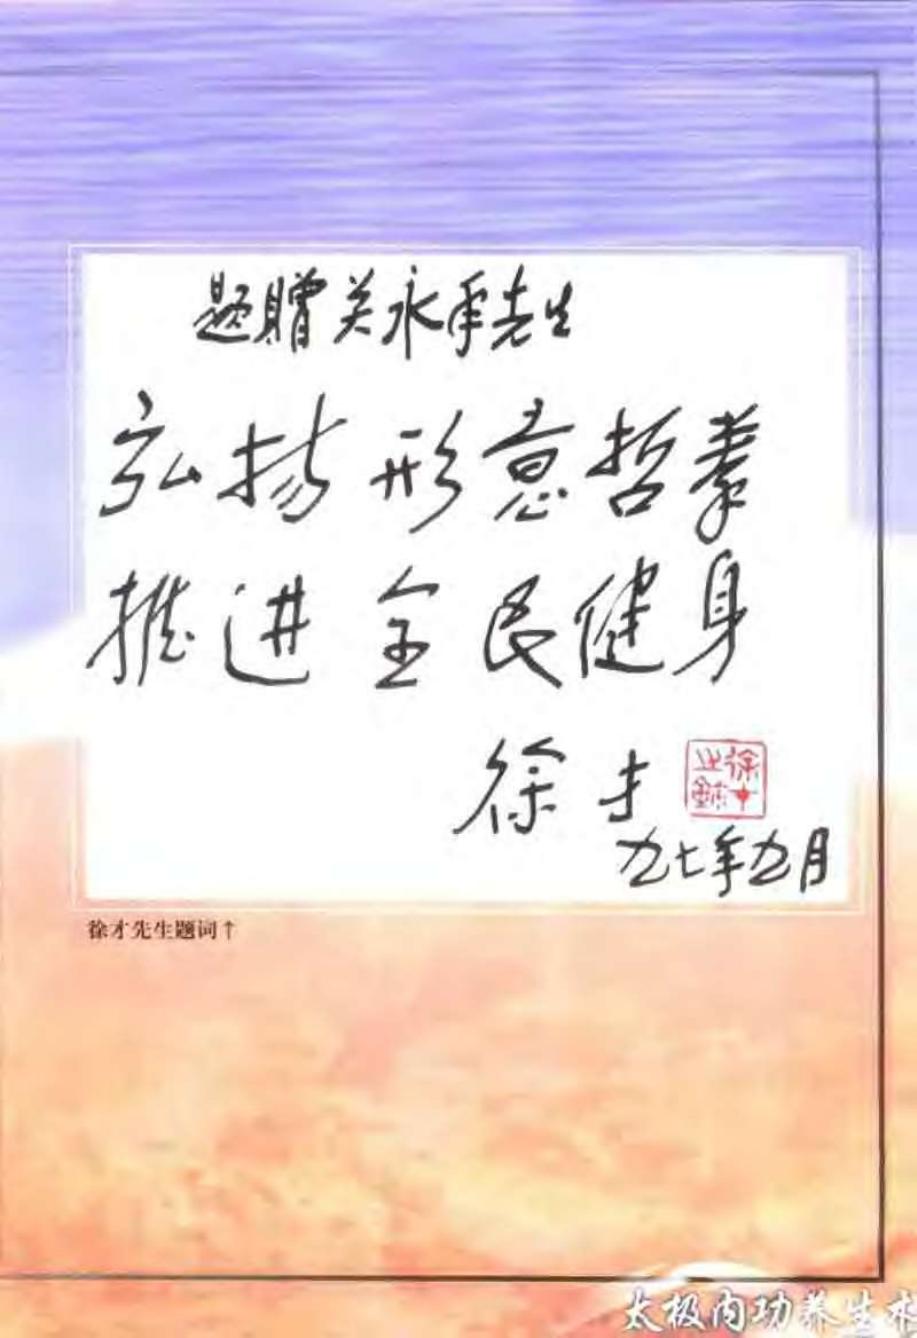 题贈关永年先生
弘扬形意哲拳
推进全民健身
徐才
徐才之鉥
九七年九月
徐才先生题词↑
太极内功养生术